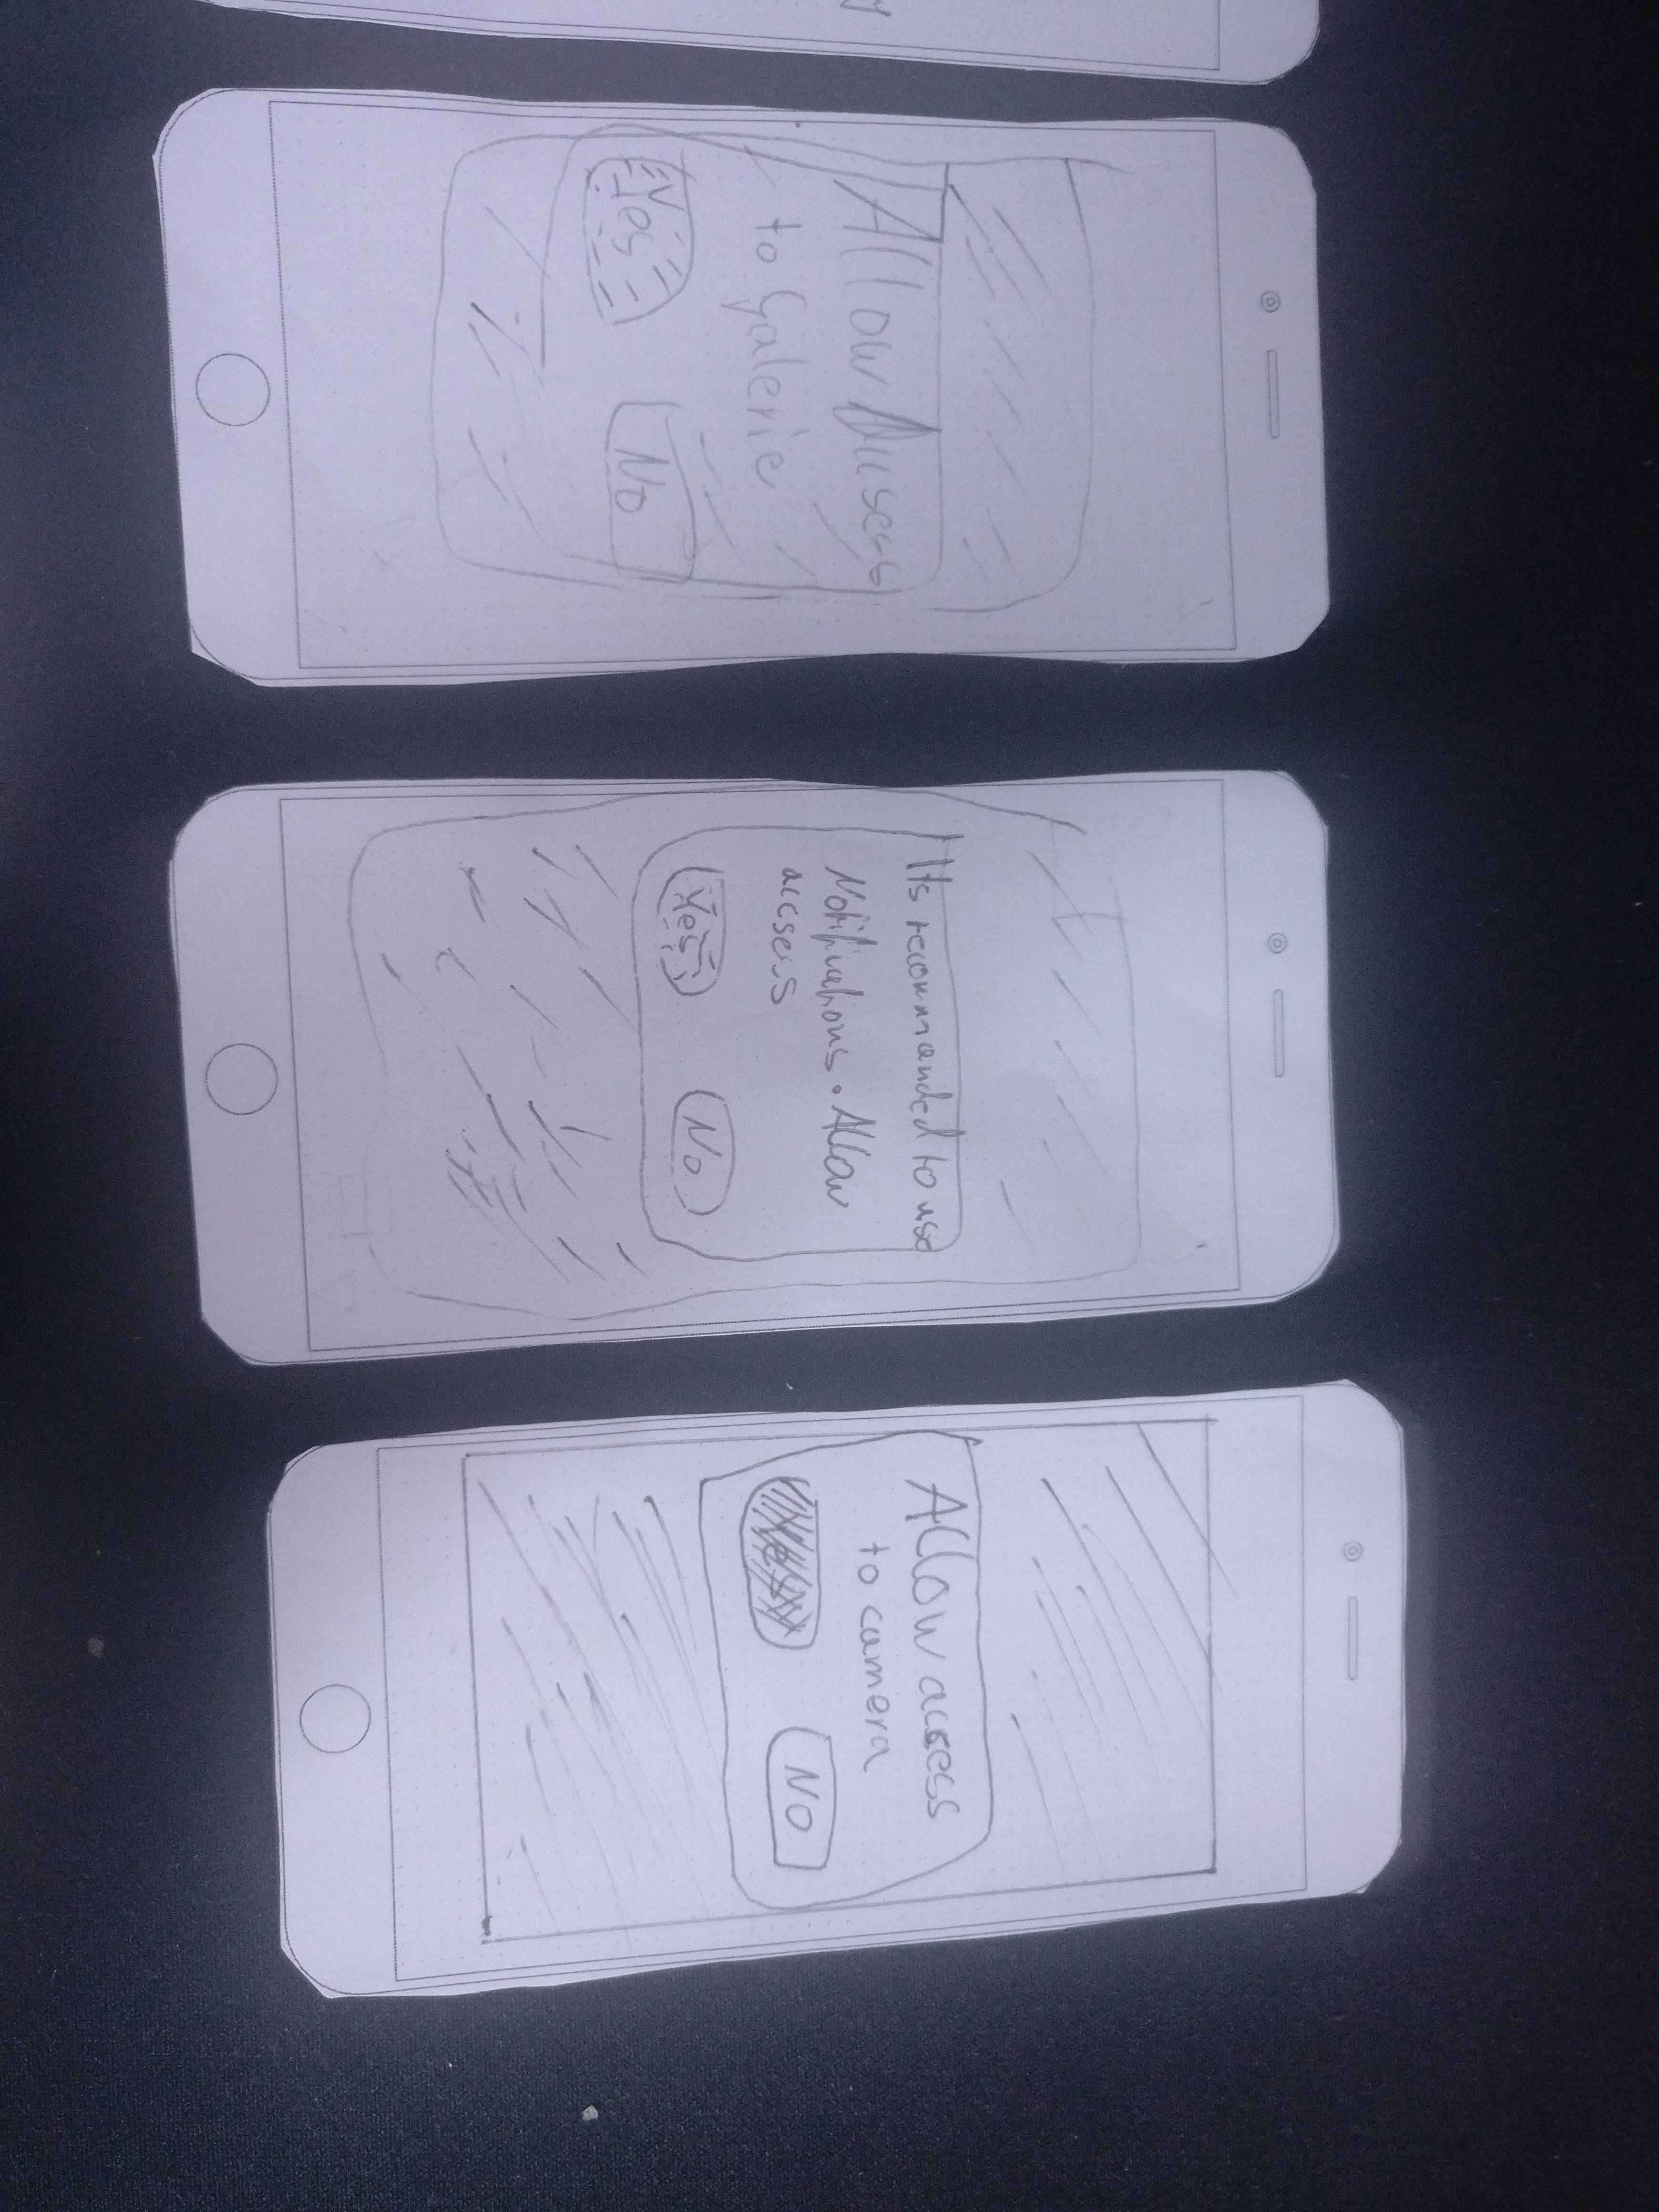 Allow Acsess
to Galerie
Yes No
Its recommanded to use
Notifications. Allow
acsess
Yes No
Allow access
to camera
Yes No